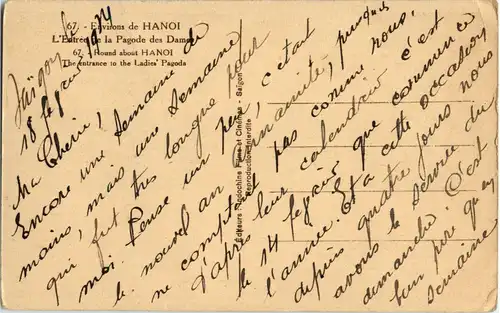 67. - Environs de HANOI
L'Entrée de la Pagode des Dames
67. - Round about HANOI
The entrance to the Ladies' Pagoda
Saïgon, le
18 février 1934
Ma Chérie,
Encore une semaine de
moins, mais une semaine
qui fut très longue pour
moi. Pense un peu, c'était
le nouvel an annamite, puisqu'
ne comptent pas comme nous.
D'après leur calendrier c'est
le 14 février que commence
l'année. Et à cette occasion
depuis quatre jours nous
avons le service du
dimanche. C'est
bien pire qu'en
semaine
Éditeurs Indochine Films et Cinémas - Saigon
Reproduction interdite